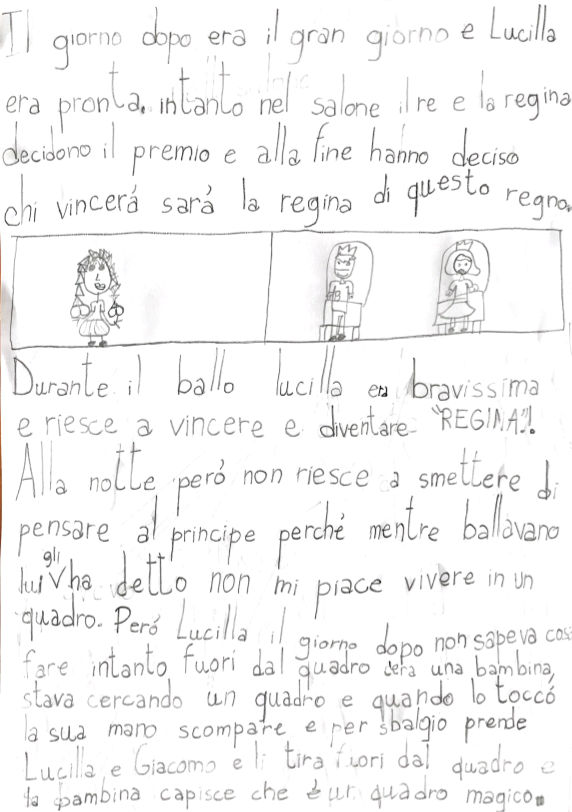 Il giorno dopo era il gran giorno e Lucilla
era pronta. intanto nel salone il re e la regina
decidono il premio e alla fine hanno deciso
chi vincerá sará la regina di questo regno.
Durante il ballo lucilla era bravissima
e riesce a vincere e diventare "REGINA"!.
Alla notte peró non riesce a smettere di
pensare al principe perché mentre ballavano
lui gli ha detto non mi piace vivere in un
quadro. Peró Lucilla il giorno dopo non sapeva cosa
fare intanto fuori dal quadro c'era una bambina,
stava cercando un quadro e quando lo toccó
la sua mano scompare e per sbalgio prende
Lucilla e Giacomo e li tira fuori dal quadro e
la bambina capisce che é un quadro magico.